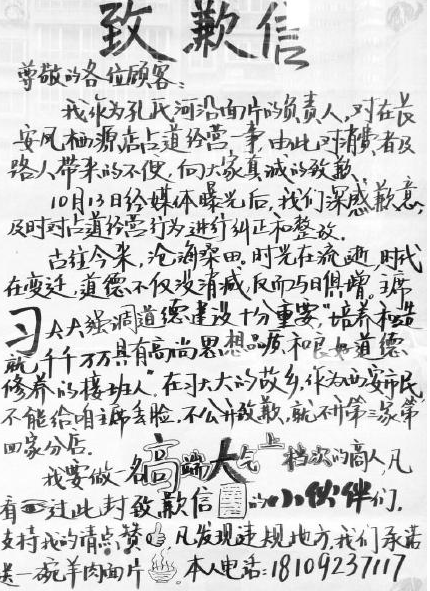 致歉信
尊敬的各位顾客:
我作为孔氏河沿面片的负责人,对在长
安凤栖源店占道经营一事,由此对消费者及
路人带来的不便,向大家真诚的致歉。
10月13日经媒体曝光后,我们深感歉意,
及时对占道经营行为进行纠正和整改。
古往今来,沧海桑田。时光在流逝,时代
在变迁,道德不仅没消减,反而与日俱增。主席
习大大强调道德建设十分重要,"培养和造
就千千万万具有高尚思想品质和良好道德
修养的接班人"在习大大的故乡,作为西安市民,
不能给咱主席丢脸,不公开致歉,就不开第三家、第
四家分店。
我要做一名高端大气上档次的商人,凡
看过此封致歉信的小伙伴们,
支持我的请点赞,凡发现违规地方,我们承诺
送一碗羊肉面片。本人电话:18109237117